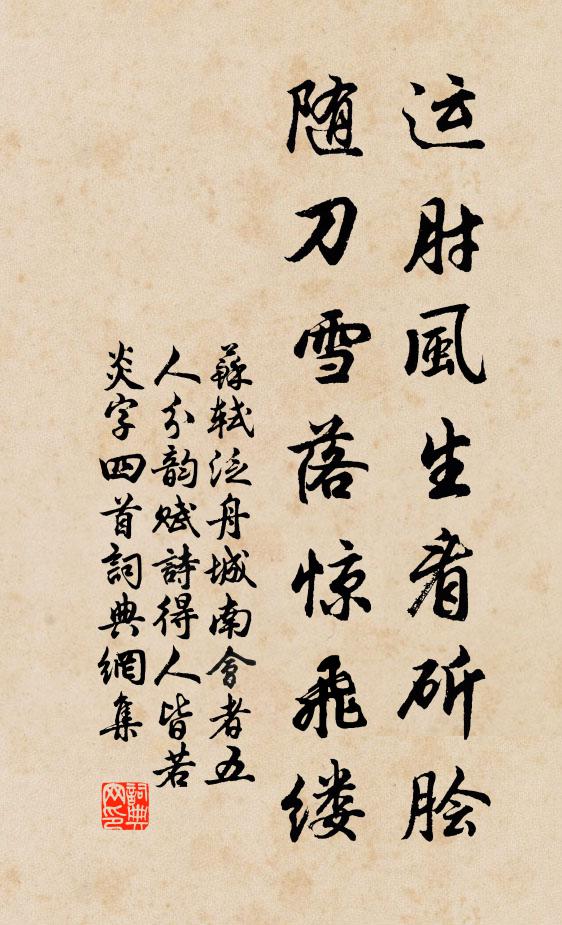 运肘風生看斫脍
随刀雪落惊飛缕
蘇轼泛舟城南會者五
人分韵赋詩得人皆若
炎字四首詞典網集
詞典
网印